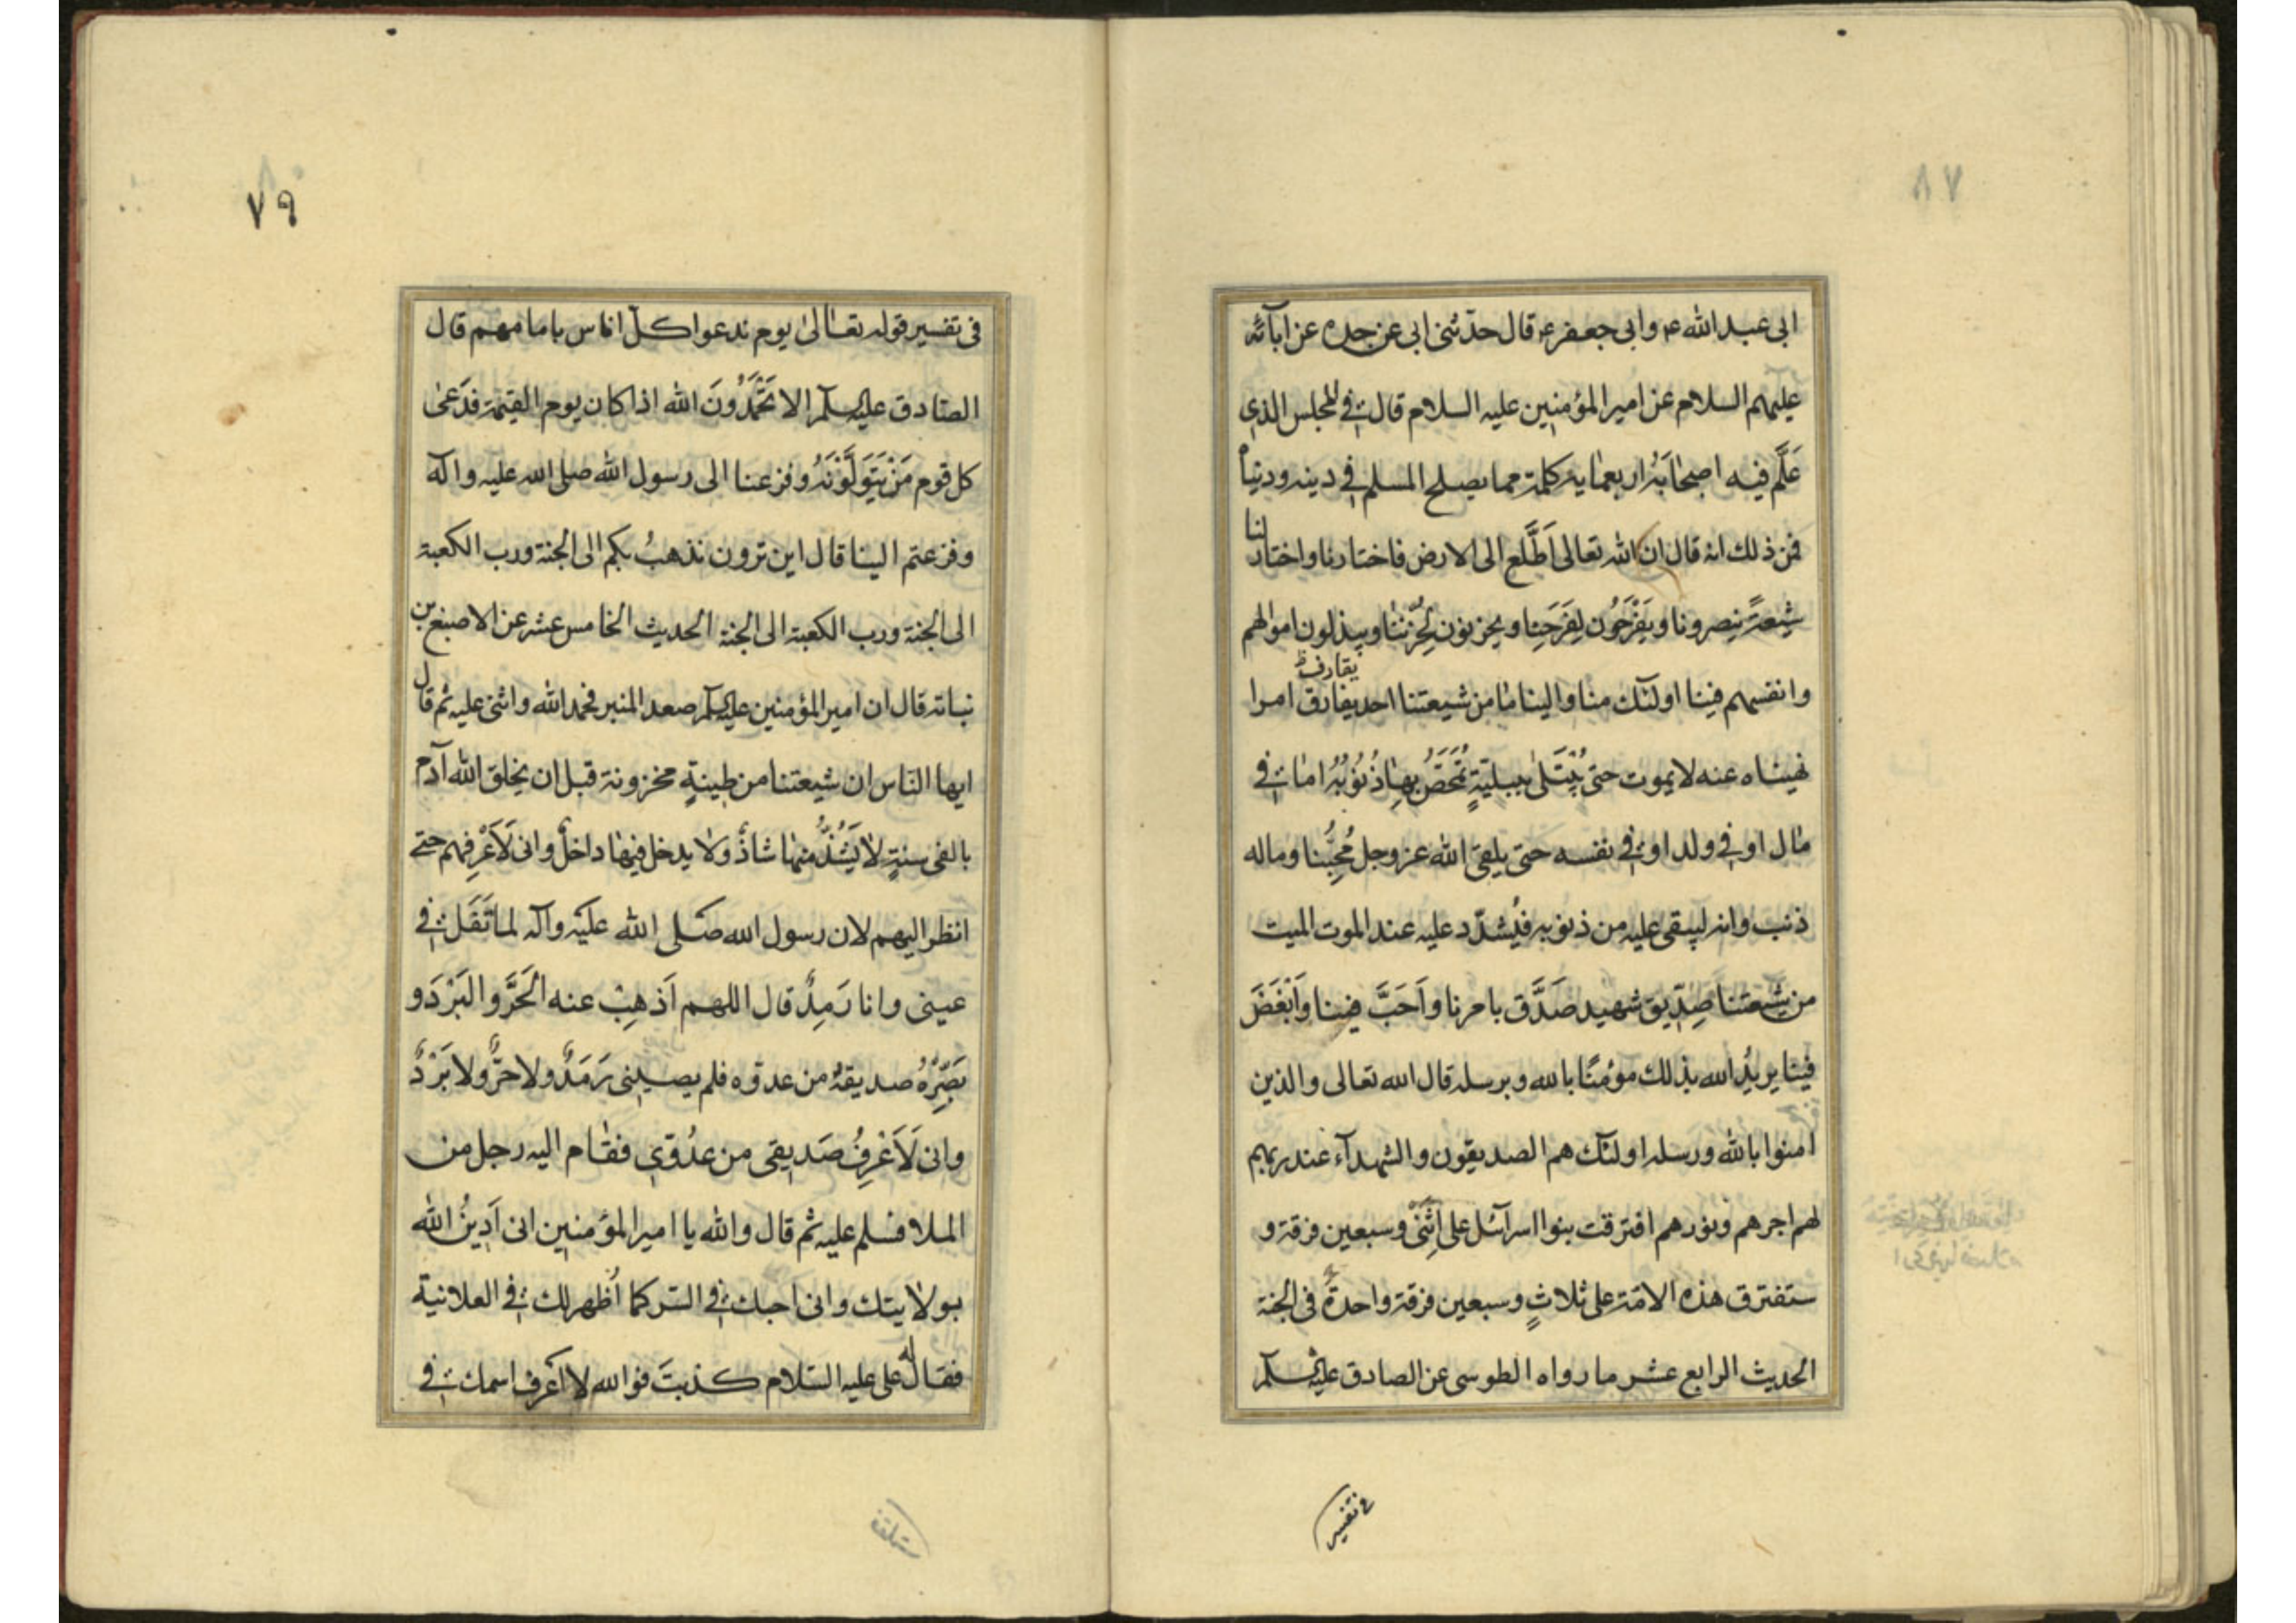 ابی عبد الله ع وابی جعفر ع قال حدّثنی ابی عن جده عن ابآئه
علیهم السلام عن امیر المؤمنین علیه السلام قال فی المجلس الذی
عَلَّم فیه اصحابَهُ اربعمایة کلمة مما یصلح المسلم فی دینه ودنیاه
فمن ذلك انه قال ان الله تعالی اَطَّلَع الی الارض فاختارنا واختار لنا
شیعةً ینصروننا ویَفْرَحُون لِفَرَحِنا ویحزنون لِحُزْنِنا ویبذلون اموالهم
وانفسهم فینا اولئك منا والینا ما من شیعتنا احد یفارق امرا
یقارف ظ
نهیناه عنه لا یموت حتی یُبْتَلی ببلیّةٍ تُمَحَّصُ بها ذُنُوبُهُ اما فی
مال او فی ولد او فی نفسه حتی یلقی الله عز وجل مُحِبُّنا وماله
ذنب وانه لیبقی علیه من ذنوبه فیُشدّد علیه عند الموت المیت
من شیعتنا صِدّیق شهید صَدَّق بامرنا واَحَبَّ فینا واَبْغَضَ
فینا یریدُ الله بذلك مؤمنًا بالله وبرسله قال الله تعالی والذین
امنوا بالله ورسله اولئك هم الصدیقون والشهدآء عند ربهم
لهم اجرهم ونورهم افترقت بنوا اسرآئل علی اِثْنَیْ وسبعین فرقة و
ستفترق هذه الامّة علی ثلاثٍ وسبعین فرقة واحدةٌ فی الجنة
الحدیث الرابع عشر ما رواه الطوسی عن الصادق علیه السلم
فی تفسیر
٧٩
فی تفسیر قوله تعالی یوم ندعوا کلّ اناس بامامهم قال
الصّادق علیه السلم الا تَحْمَدُونَ الله اذا کان یوم القیٰمة فدَعیٰ
کل قوم مَنْ یَتَوَلَّوْنَهُ وفزعنا الی رسول الله صلی الله علیه واله
وفزعتم الینا قال این ترون نذهبُ بکم الی الجنة ورب الکعبة
الی الجنة ورب الکعبة الی الجنة الحدیث الخامس عشر عن الاصبغ بن
نباته قال ان امیر المؤمنین علیه السلم صعد المنبر فحمد الله واثنی علیه ثم قال
ایها النّاس ان شیعتنا من طینةٍ مخزونة قبل ان یخلق الله آدم
بالفی سنةٍ لا یَشُذُّ منها شاذٌّ ولا یدخل فیها داخلٌ وانی لَاَعْرِفهم حتی
انظر الیهم لان رسول الله صَلی الله علیَه وآله لما تَفَل فی
عینی وانا رَمِدٌ قال اللهم اَذهِبْ عنه الحَرَّ والبَرْدَ و
بَصِّرْهُ صدیقهُ من عدوّه فلم یصیبنی رَمَدٌ ولا حَرٌّ ولا بَرْدٌ
وانی لَاَعْرِفُ صَدیقی من عدُوّی فقام الیه رجل من
الملا فسلم علیه ثم قال والله یا امیر المؤمنین انی اَدِینُ الله
بولایتك وانی احبك فی السّر کما اُظهر لك فی العلانیة
فقال له علی علیه السّلام کذبتَ فوالله لا اَعرف اسمك فی